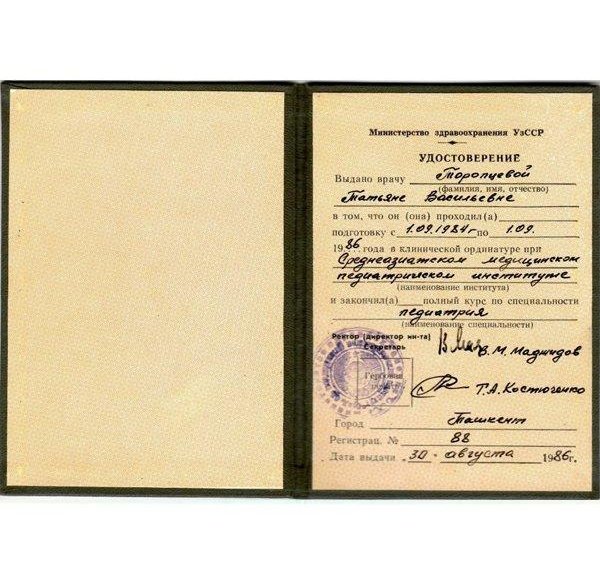 Министерство здравоохранения УзССР
УДОСТОВЕРЕНИЕ
Выдано врачу Торопцевой
(фамилия, имя, отчество)
Татьяне Васильевне
в том, что он (она) проходил(а)
подготовку с 1.09.1984г по 1.09.
1986 года в клинической ординатуре при
Среднеазиатском медицинском
педиатрическом институте
(наименование института)
и закончил(а) полный курс по специальности
педиатрия
(наименование специальности)
Ректор (директор ин-та)
В. М. Маджидов
Секретарь
Гербовая
Т.А. Костюченко
Город Ташкент
Регистрац. № 88
Дата выдачи 30 августа 1986г.